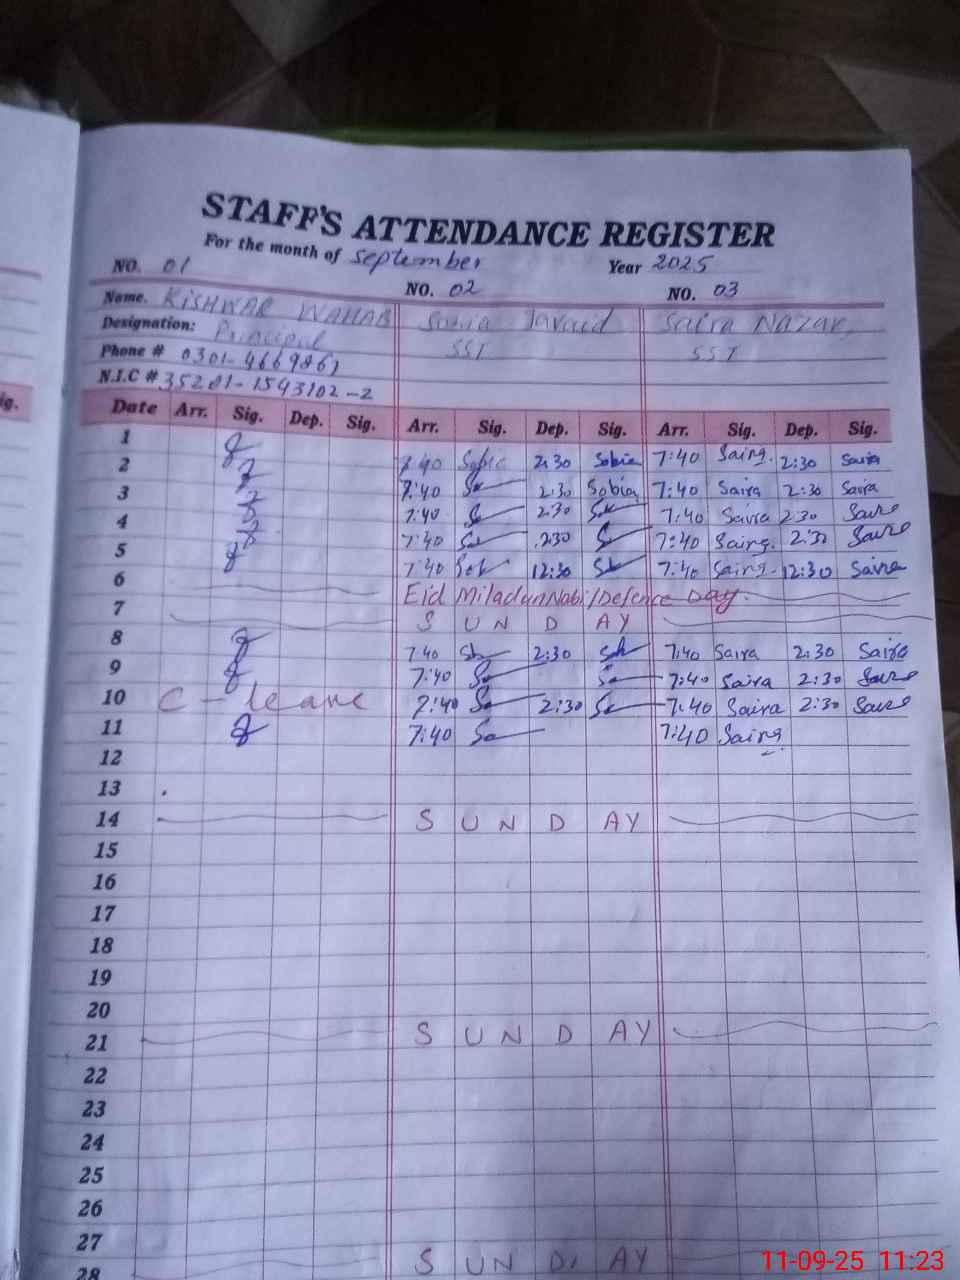 STAFF'S ATTENDANCE REGISTER
For the month of September Year 2025
NO. 01 NO. 02 NO. 03
Name. KISHWAR WAHAB Sobia Javaid Saira Nazar,
Designation: Principal SST SST
Phone # 0301-4669861
N.I.C # 35201-1543102-2
ig.
Date Arr. Sig. Dep. Sig. Arr. Sig. Dep. Sig. Arr. Sig. Dep. Sig.
1 7:40 Sobia 2:30 Sobia 7:40 Saira. 2:30 Saira
2 7:40 2:30 Sobia 7:40 Saira 2:30 Saira
3 7:40 2:30 7:40 Saira 2:30 Saira
4 7:40 2:30 7:40 Saira. 2:30 Saira
5 7:40 12:30 7:40 Saira. 12:30 Saira
6 Eid MiladunNabi/Defence Day.
7 S U N D AY
8 7:40 2:30 7:40 Saira 2:30 Saira
9 7:40 7:40 Saira 2:30 Saira
10 C - leave 7:40 2:30 7:40 Saira 2:30 Saira
11 7:40 7:40 Saira
12
13 .
14 S U N D AY
15
16
17
18
19
20
21 S U N D AY
22
23
24
25
26
27
28 S U N D AY
11-09-25 11:23